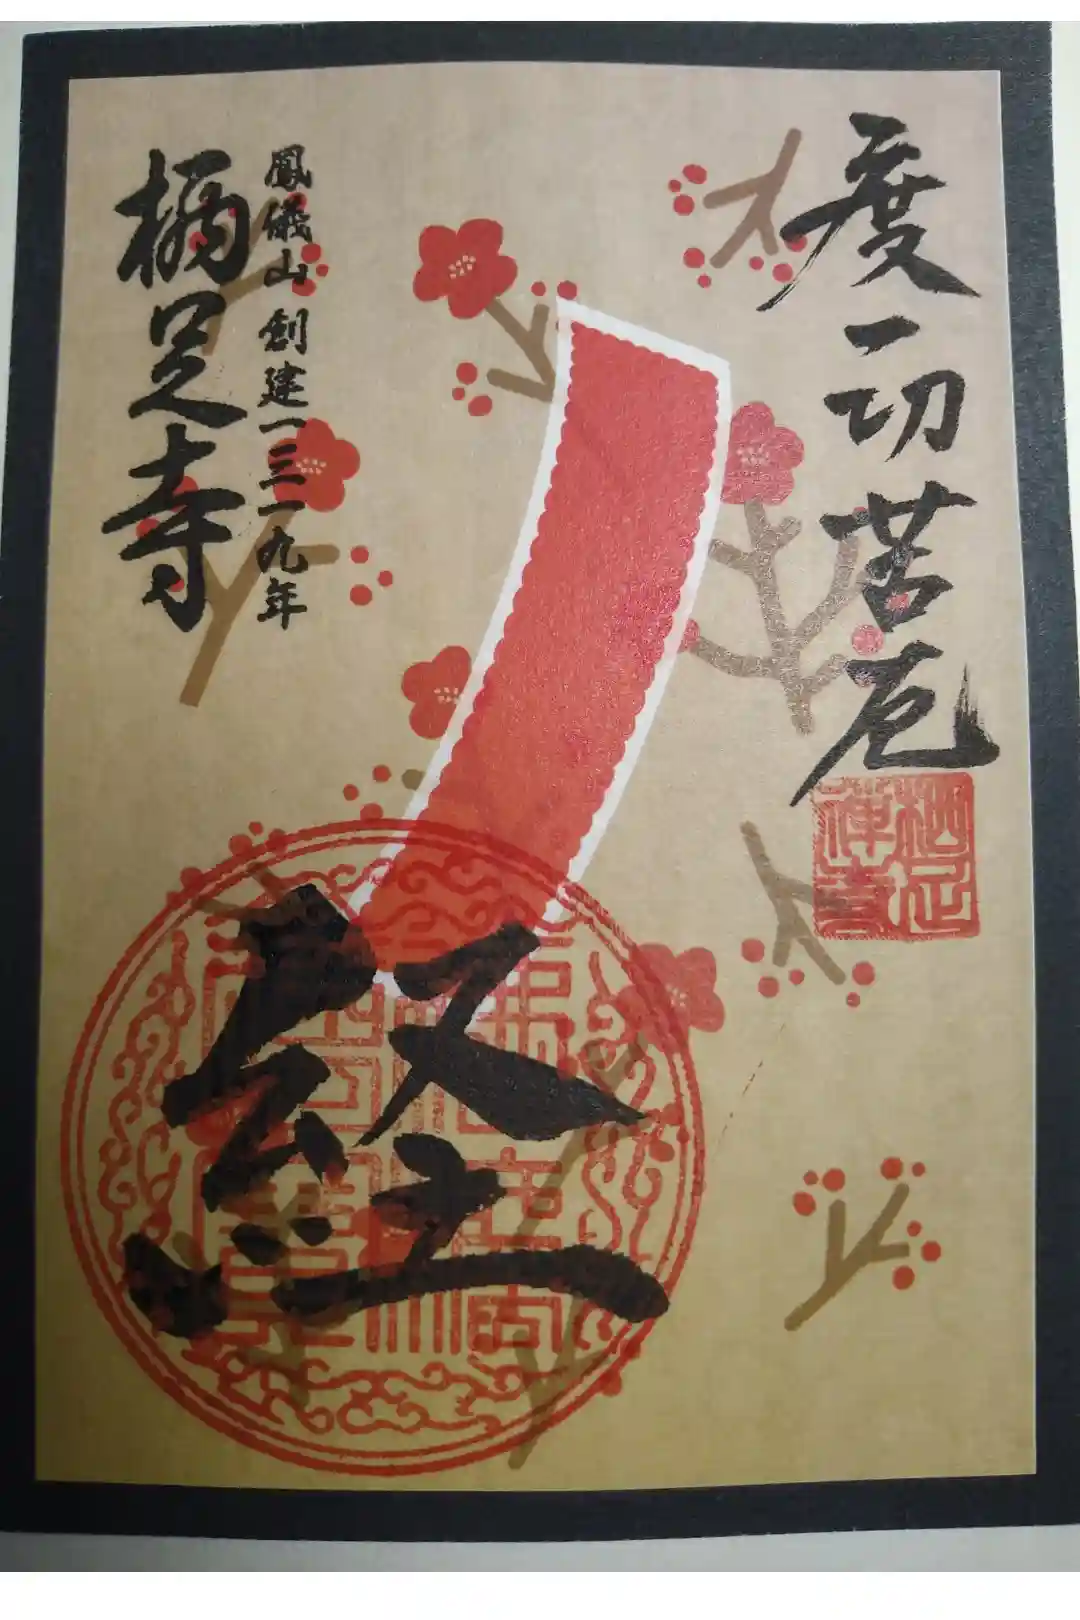 度一切苦厄
栖足
禅寺
経
鳳儀山 創建一三一九年
栖足寺